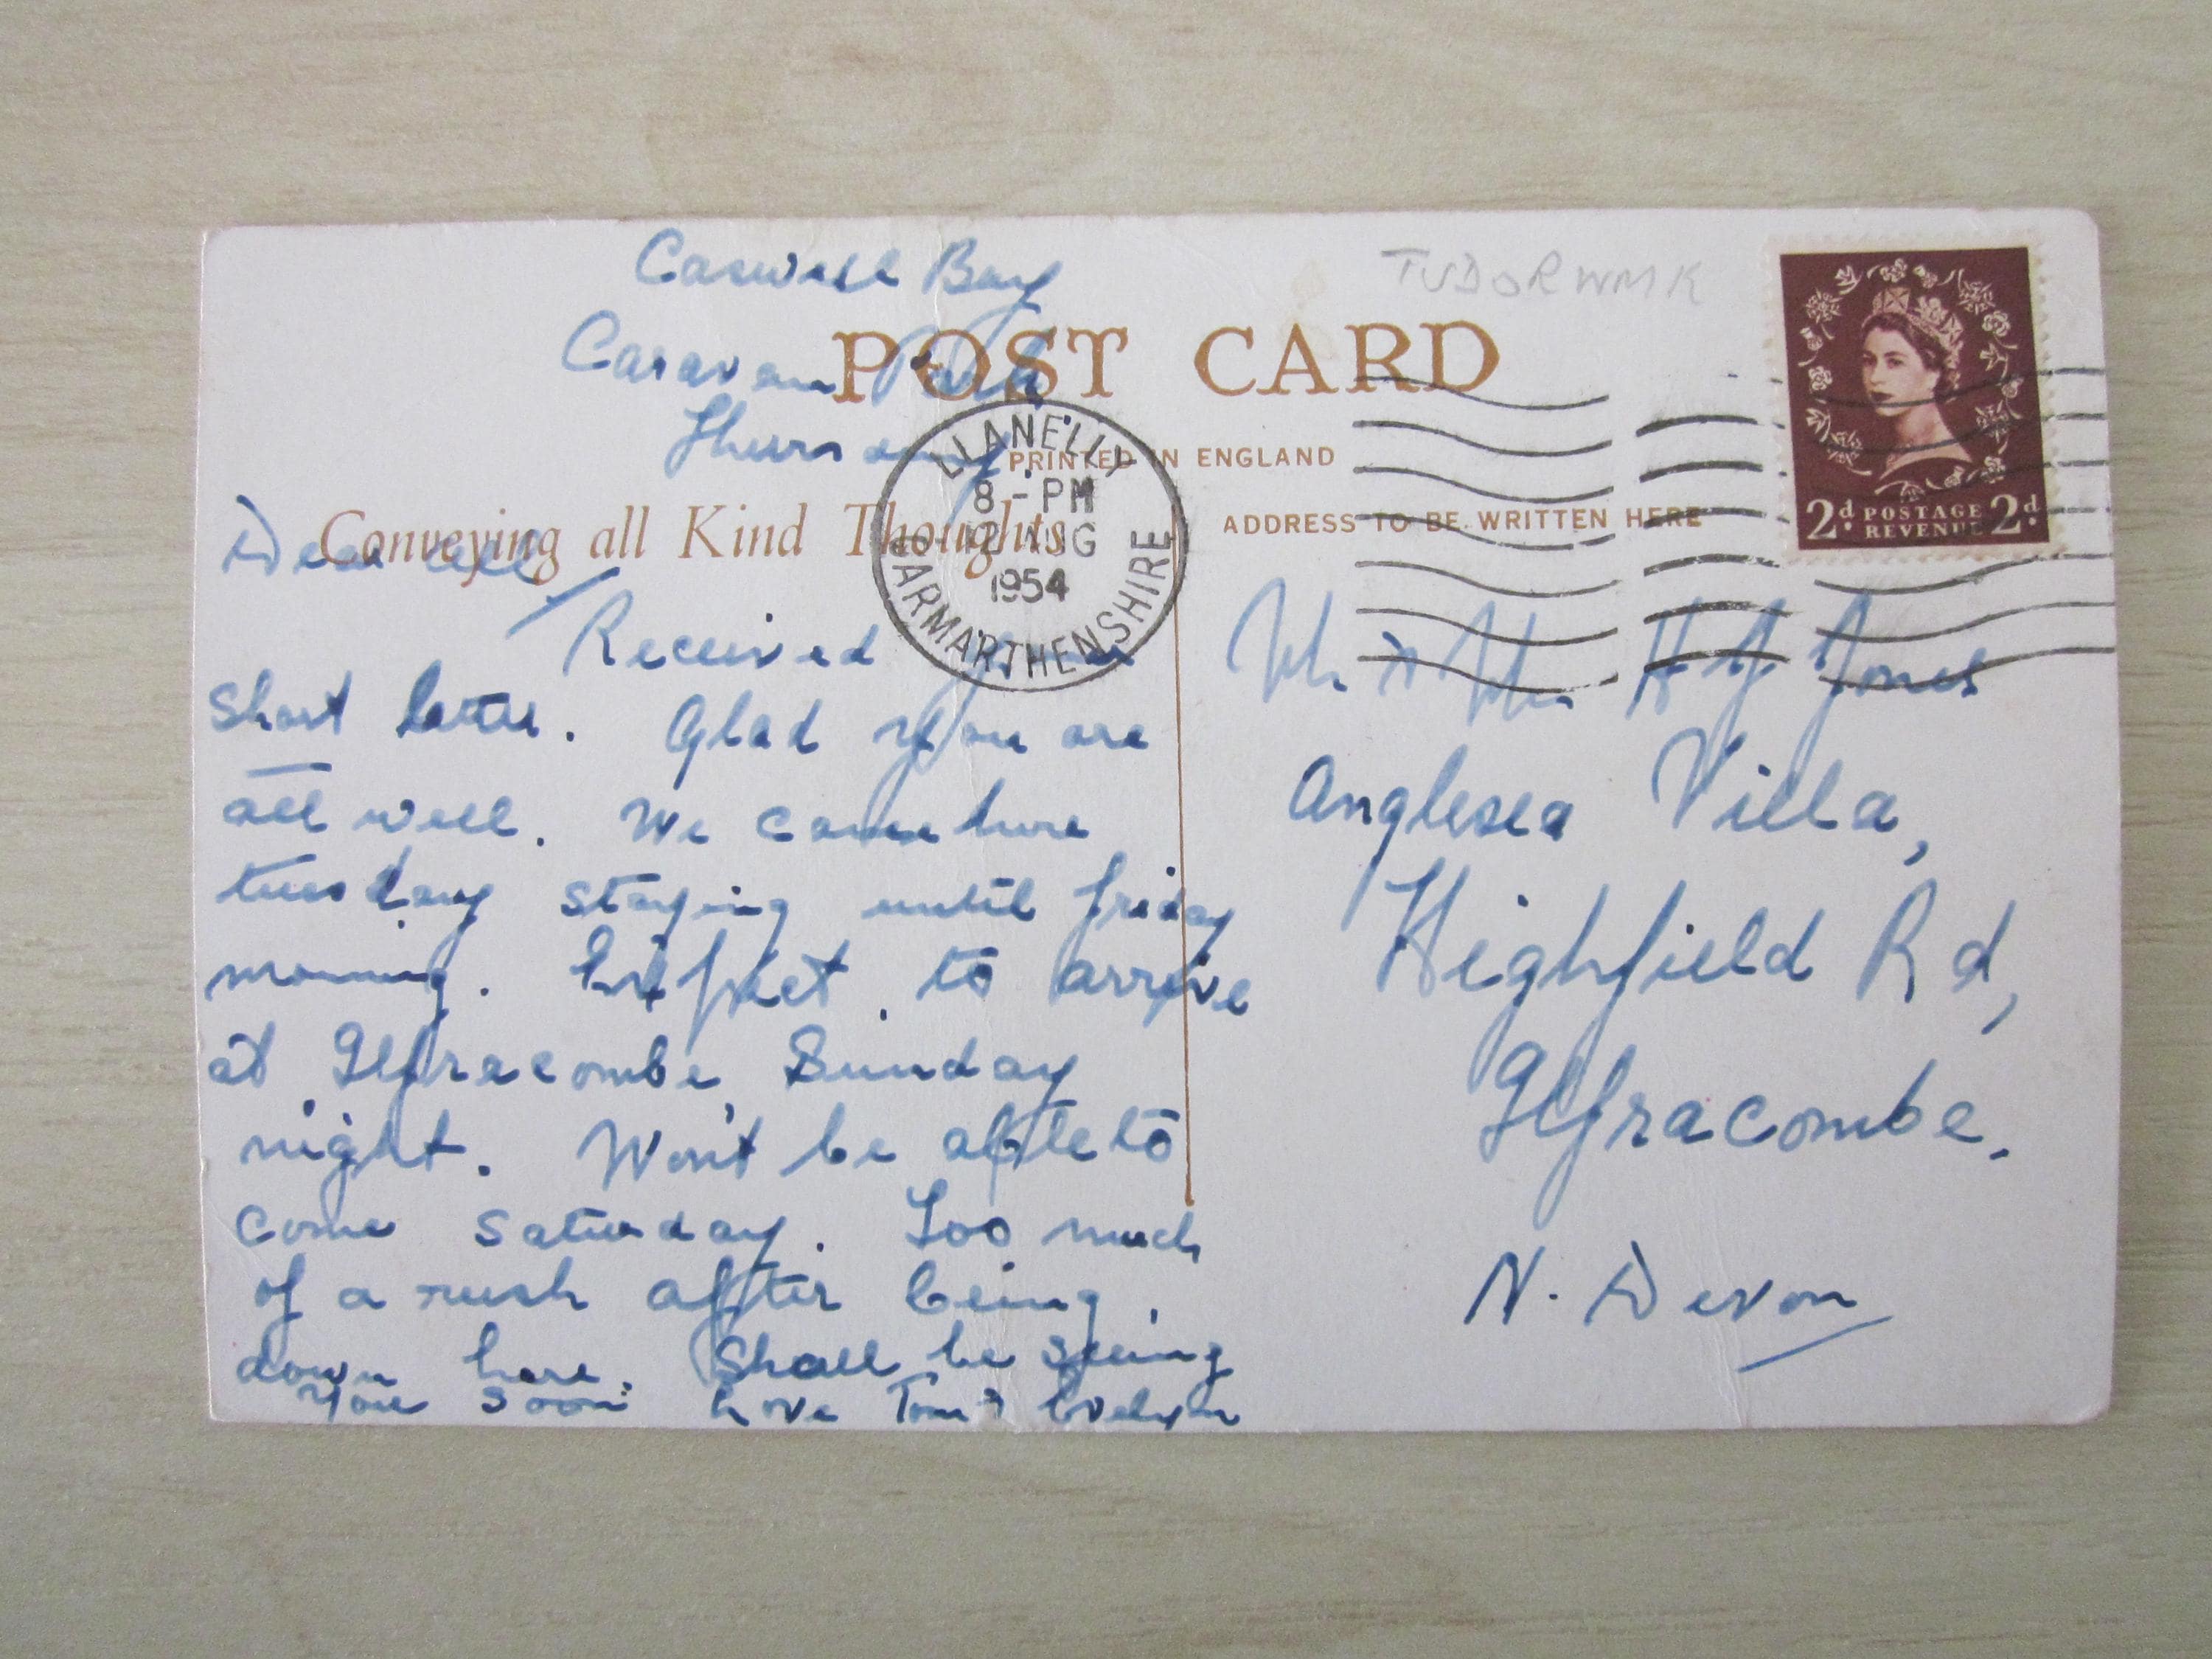 Caswell Bay
Caravan Park
Thursday.
TUDOR WMK
POST CARD
PRINTED IN ENGLAND
ADDRESS TO BE WRITTEN HERE
Conveying all Kind Thoughts
LLANELLY
8 - PM
12 AUG
1954
CARMARTHENSHIRE
2d POSTAGE REVENUE 2d
Dear all,
Received your
short letter. Glad you are
all well. We came here
tuesday staying until friday
morning. Expect to arrive
at Ilfracombe Sunday
night. Won't be able to
come Saturday. Too much
of a rush after being
down here. Shall be seeing
you soon. Love Tom & Evelyn
Mr & Mrs H J Jones
Anglesea Villa,
Highfield Rd,
Ilfracombe.
N. Devon